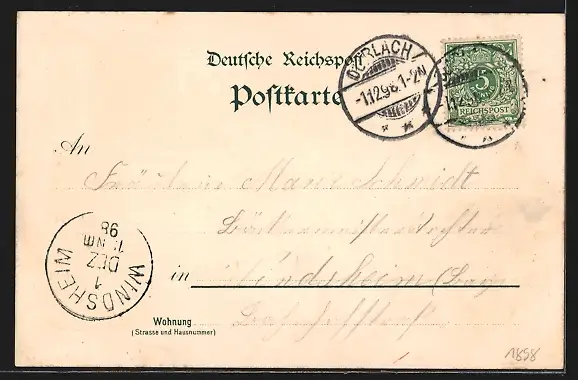 Deutsche Reichspost
Postkarte
DURLACH
-1.12.98.1-2N
5
REICHSPOST
An
Fräulein Marie Schmidt
Bäckermeisterstochter
in Windsheim (Bay)
WINDSHEIM
1
DEZ
NM
98
Wohnung
(Strasse und Hausnummer)
1898